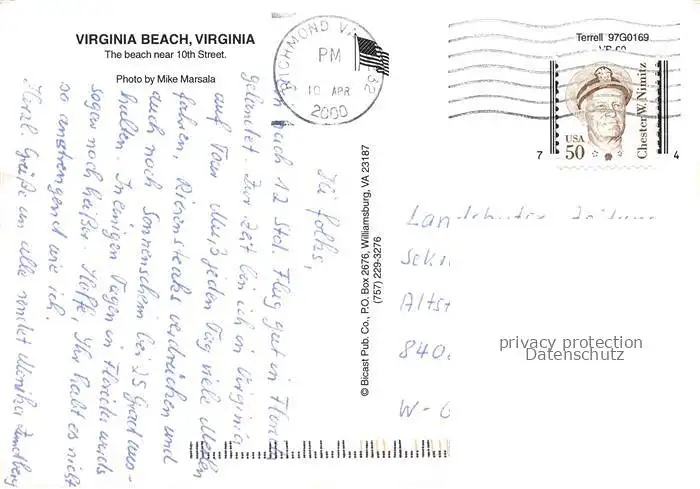 VIRGINIA BEACH, VIRGINIA
The beach near 10th Street.
Photo by Mike Marsala
RICHMOND VA 232
PM
10 APR
2000
Terrell 97G0169
VP-60
USA
50
Chester W. Nimitz
7 4
Hi folks,
bin nach 12 Std. Flug gut in Florida
gelandet. Zur Zeit bin ich in Virginia
auf Tour. Muß jeden Tag viele Meilen
fahren, Riesensteaks verdrücken und
auch noch Sonnenschein bei 25 Grad aus-
halten. In einigen Tagen in Florida wirds
sogar noch heißer. Hoffe, Ihr habt es nicht
so anstrengend wie ich.
Herzl. Grüße an alle sendet Monika
© Bicast Pub. Co., P.O. Box 2676, Williamsburg, VA 23187
(757) 229-3276
Landshuter Zeitung
Altst
840
W-
privacy protection
Datenschutz